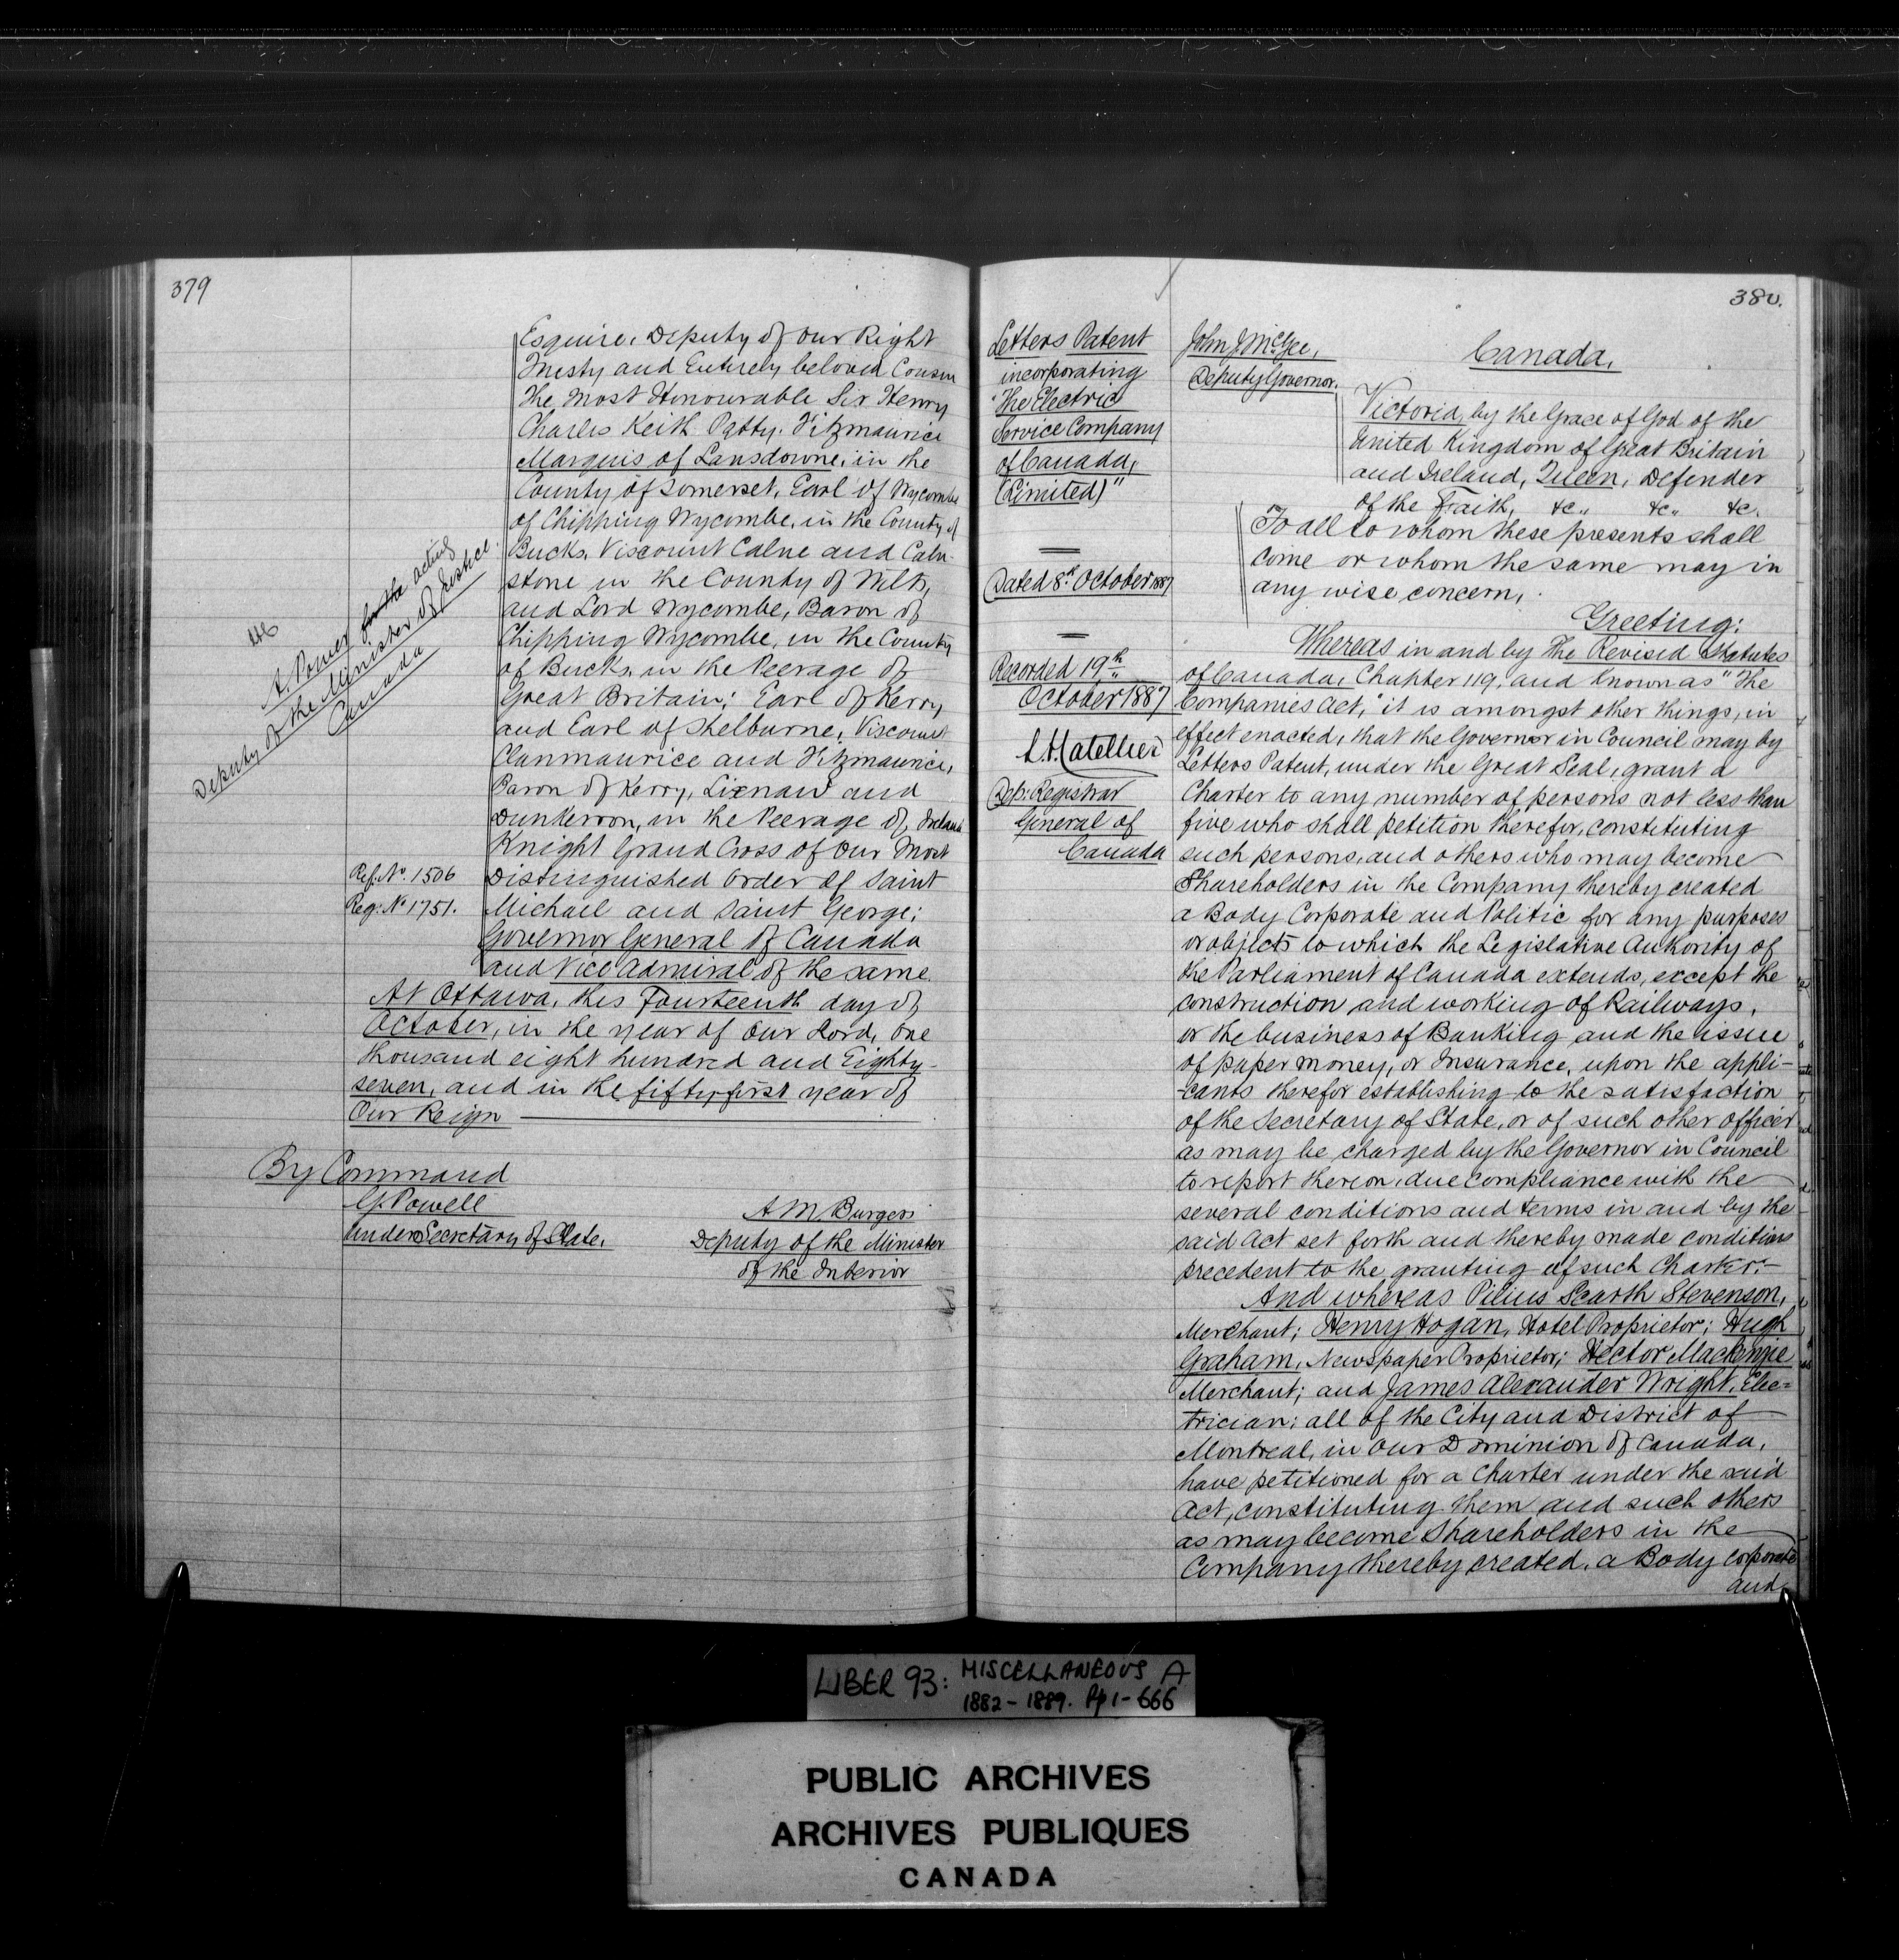 379
Esquire, Deputy of Our Right
Trusty and Entirely beloved Cousin
The Most Honourable Sir Henry
Charles Keith Patty-Fitzmaurice
Marquis of Lansdowne, in the
County of Somerset, Earl of Wycombe
of Chipping Wycombe, in the County of
Bucks, Viscount Calne and Caln-
stone in the County of Wilts,
and Lord Wycombe, Baron of
Chipping Wycombe, in the County
of Bucks, in the Peerage of
Great Britain; Earl of Kerry
and Earl of Shelburne, Viscount
Clanmaurice and Fitzmaurice,
Baron of Kerry, Lixnaw and
Dunkerron, in the Peerage of Ireland
Knight Grand Cross of Our Most
Distinguished Order of Saint
Michael and Saint George;
Governor General of Canada
and Vice Admiral of the same.
At Ottawa, this Fourteenth day of
October, in the year of Our Lord, One
thousand eight hundred and Eighty-
seven, and in the fifty-first year of
Our Reign
A. Power for the acting
Deputy of the Minister of Justice.
Canada
Ref: No. 1506
Reg: No 1751.
By Command
G. Powell
Under Secretary of State.
A M. Burgess
Deputy of the Minister
of the Interior
380.
Letters Patent
incorporating
"The Electric
Service Company
of Canada,
(Limited)"
Dated 8th October 1887
Recorded 19th
October 1887
L. A. Catellier
Dep: Registrar
General of
Canada
John J McGee,
Deputy Governor.
Canada,
Victoria, by the Grace of God of the
United Kingdom of Great Britain
and Ireland, Queen, Defender
of the Faith, &c., &c., &c.
To all to whom these presents shall
come or whom the same may in
any wise concern,
Greeting:
Whereas in and by The Revised Statutes
of Canada, Chapter 119, and known as "The
Companies Act," it is amongst other things, in
effect enacted, that the Governor in Council may by
Letters Patent, under the Great Seal, grant a
Charter to any number of persons not less than
five who shall petition therefor, constituting
such persons, and others who may become
Shareholders in the Company thereby created
a Body Corporate and Politic for any purposes
or objects to which the Legislative Authority of
the Parliament of Canada extends, except the
construction and working of Railways,
or the business of Banking and the issue
of paper money, or Insurance, upon the appli-
-cants therefor establishing to the satisfaction
of the Secretary of State, or of such other officer
as may be charged by the Governor in Council
to report thereon, due compliance with the
several conditions and terms in and by the
said Act set forth and thereby made conditions
precedent to the granting of such Charter:-
And whereas Pilius Scarth Stevenson,
Merchant; Henry Hogan, Hotel Proprietor; Hugh
Graham, Newspaper Proprietor; Hector Mackenzie
Merchant; and James Alexander Wright, Elec=
trician; all of the City and District of
Montreal, in Our Dominion of Canada,
have petitioned for a Charter under the said
Act, constituting them and such others
as may become Shareholders in the
Company thereby created, a Body corporate
and
LIBER 93: MISCELLANEOUS A
1882-1889. Pp 1-666
PUBLIC ARCHIVES
ARCHIVES PUBLIQUES
CANADA